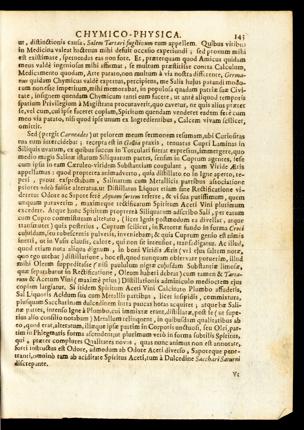 CHYMICO-PHYSICA. 145
ut, distinctionis causa, Salem Tartari fugitivum eum appellem. Quibus viribus
in Medicina valeat hactenus mihi defuit occasio experiundi; sed pronum mihi
est existimare, spernendas eas non fore. Et, præterquam quod Amicus quidam
meus valde ingeniosus mihi affirmat, se multum præstitisse contra Calculum,
Medicamento quodam, Arte parato, non multum à via nostra differente, Germa-
nus quidam Chymicus valde expertus, percipiens, me Salis hujus parandi modo-
rum non esse imperitum, mihi memorabat, in populosa quadam patriæ suæ Civi-
tate, insignem quendam Chymicum tanti eum facere, ut antè aliquod temporis
spatium Privilegium à Magistratu procuraverit, quo cavetur, ne quis alius præter
se, vel cum, qui ipse faceret copiam, Spiritum quendam venderet eadem ferè cum
meo via paratum, nisi quod ipse unum ex Ingredientibus, Calcem vivam scilicet,
omittit.
Sed (pergit Carneades) ut priorem meum sermonem resumam, ubi Curiositas
tua eum intercidebat; recepta est in Gallia praxis, tenuatas Cupri Laminas in
Siliquis uvarum, ex quibus succus in Torculari fuerat expressus, immergere, quo
medio magis Salinæ istarum Siliquarum partes, sensim in Cuprum agentes, sese
cum ipso in eam Cæruleo-viridem Substantiam coagulant, quam Viride Æris
appellamus: quod propterea animadverto, quia distillato eo in Igne aperto, re-
peri, prout exspectabam, Salinarum cum Metallicis partibus associatione
priores adeò fuisse alteratas, ut Distillatus Liquor etiam sine Rectificatione vi-
deretur Odore ac Sapore ferè Aquam fortem referre, & visus purissimum, quem
unquam paraverim, maximeque rectificatum Spiritum Aceti Vini plurimum
excedere. Atque hunc Spiritum propterea Siliquarum adscribo Sali, per earum
cum Cupro commistionem alterato, (licet Ignis postmodum ea divellat, atque
transmutet) quia posterius, Cuprum scilicet, in Retortæ fundo in forma Croci
cubidulum, seu rubescentis pulveris, inveniebam; & quia Cuprum genio est nimis
inerti, ut in Vasis clausis, calore, qui non sit intensior, transfugiatur. Ac illud,
quod etiam nota aliqua dignum, in boni Viridis Æris (vel ejus saltem notæ,
quo ego utebar) distillatione, hoc est, quod nunquam observare potuerim, illud
mihi Oleum suppeditasse (nisi paululum nigræ cujusdam Substantiæ limosæ,
quæ separabatur in Rectificatione, Oleum haberi debeat) cum tamen & Tarta-
rus & Acetum Vini (maximè prius) Distillationis adminiculo mediocrem ejus
copiam largiatur. Si itidem Spiritum Aceti Vini Calcinato Plumbo affuderis,
Sal Liquoris Acidum suo cum Metallis partibus, licet insipidis, commixtura,
plusquam Saccharinum dulcedinem intra paucas horas acquiret; atque hæ Sali-
næ partes, intenso Igne à Plumbo, cui immixtæ erant, distillatæ, post se (ut supe-
rius alio consilio notabam) Metallum relinquent, in quibusdam qualitatibus ab
eo, quod erat, alteratum, illæque ipsæ partim in Corporis unctuosi, seu Olei, par-
tim in Phlegmatis forma ascendent; ut plurimum verò in forma subtilis Spiritus,
qui, præter complures Qualitates novas, quas nunc animus non est annotare,
forti instructus est Odore, admodum ab Odore Aceti diverso, Saporeque pene-
tranti, omnino tam ab aciditate Spiritus Aceti, tum à Dulcedine Sacchari Saturni
discrepante.